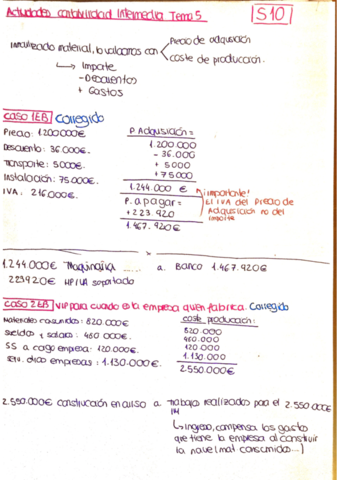 Actividades contabilidad Intermedia Tema 5
S10
Inmovilizado material, lo valoramos con
Precio de adquisición
coste de producción.
↳ Importe
- Descuentos
+ Gastos
CASO 1EB Corregido
Precio: 1.200.000€
Descuento: 36.000€
Transporte: 5000€
Instalación: 75.000€
IVA: 216.000€
P. Adquisición =
1.200.000
- 36.000
+ 5000
+ 75000
1.244.000 €
P. a pagar =
+ 223.920
1.467.920€
¡importante!
El IVA del Precio de
Adquisición no del
importe
1.244.000€ Maquinaria ..... a Banco 1.467.920€
223920€ HP IVA soportado
CASO 2EB VIP para cuando es la empresa quien fabrica. Corregido
Materiales consumidos: 820.000€
Sueldos y salarios: 480.000€
SS a cargo empresa: 120.000€
Serv. otras empresas: 1.130.000€
coste producción:
820.000
480.000
120.000
1.130.000
2.550.000€
2.550.000€ construcción en curso a Trabajo realizados para el 2.550.000€
IM
↳ Ingreso, compensa los gastos
que tiene la empresa al construir
la nave (mat consumidos...)